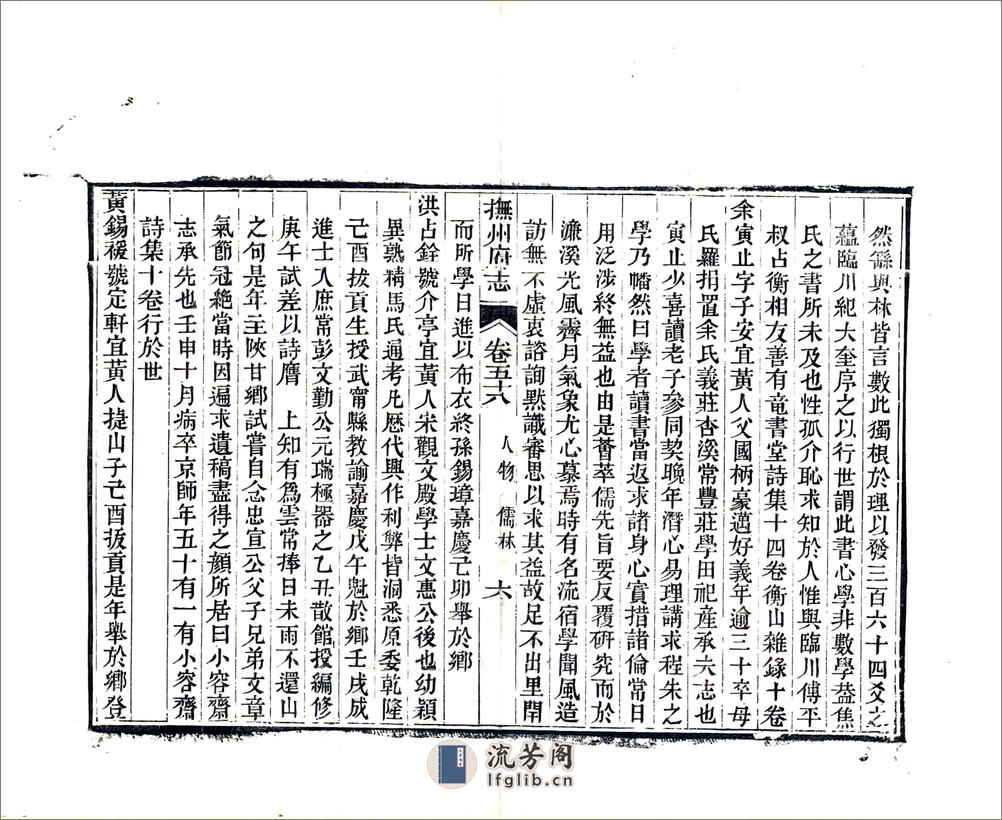 然繇與林皆言數此獨根於理以發三百六十四爻之
蘊臨川紀大奎序之以行世謂此書心學非數學葢焦
氏之書所未及也性孤介恥求知於人惟與臨川傅平
叔占衡相友善有竜書堂詩集十四卷衡山雜錄十卷
余寅止字子安宜黃人父國柄豪邁好義年逾三十卒母
氏羅捐置余氏義莊杏溪常豐莊學田祀產承夫志也
寅止少喜讀老子參同契晚年潛心易理講求程朱之
學乃幡然曰學者讀書當返求諸身心實措諸倫常日
用泛涉終無益也由是薈萃儒先旨要反覆研究而於
濂溪光風霽月氣象尤心慕焉時有名流宿學聞風造
訪無不虛衷諮詢默識審思以求其益故足不出里閈
撫州府志 卷五十八 人物 儒林 六
而所學日進以布衣終孫錫璋嘉慶己卯舉於鄉
洪占銓號介亭宜黃人宋觀文殿學士文惠公後也幼穎
異熟精馬氏通考凡歷代興作利弊皆洞悉原委乾隆
己酉拔貢生授武甯縣教諭嘉慶戊午魁於鄉壬戌成
進士入庶常彭文勤公元瑞極器之乙丑散館授編修
庚午試差以詩膺 上知有爲雲常捧日未雨不還山
之句是年主陝甘鄉試嘗自念忠宣公父子兄弟文章
氣節冠絶當時因遍求遺稿盡得之顏所居曰小容齋
志承先也壬申十月病卒京師年五十有一有小容齋
詩集十卷行於世
黃錫褑號定軒宜黃人捷山子己酉拔貢是年舉於鄉登
流芳阁
lfglib.cn